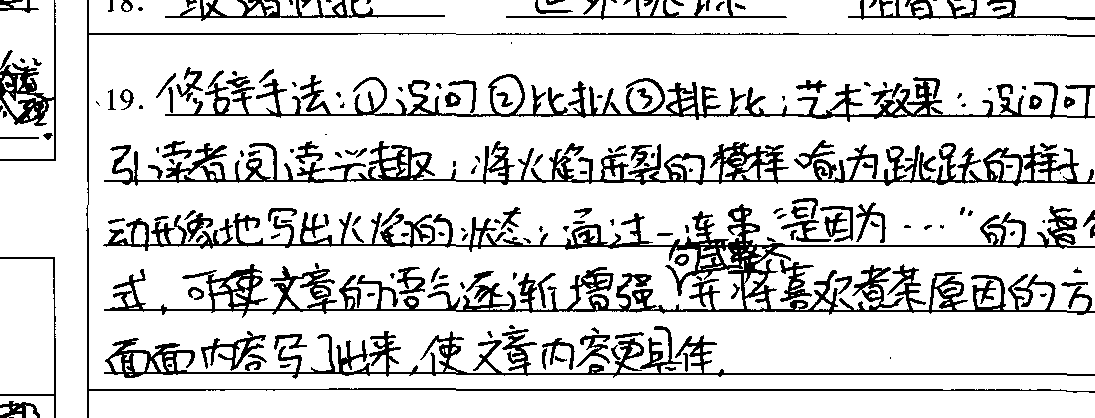 18.
19. 修辞手法:①设问②比拟③排比;艺术效果:设问可
引读者阅读兴趣;将火焰迸裂的模样喻为跳跃的样子,
动形象地写出火焰的状态;通过一连串“是因为…”的
句式整齐
式,可使文章的语气逐渐增强,并将喜欢煮茶原因的方
面面内容写了出来,使文章内容更具体.